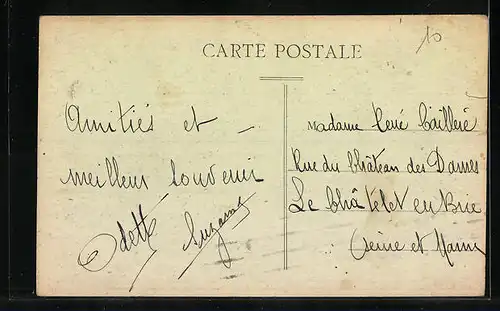 10
CARTE POSTALE
Amitiés et
meilleur souvenir
Odette Suzanne
Madame René
Rue du Château des Dames
Le Châtelet en Brie
Seine et Marne